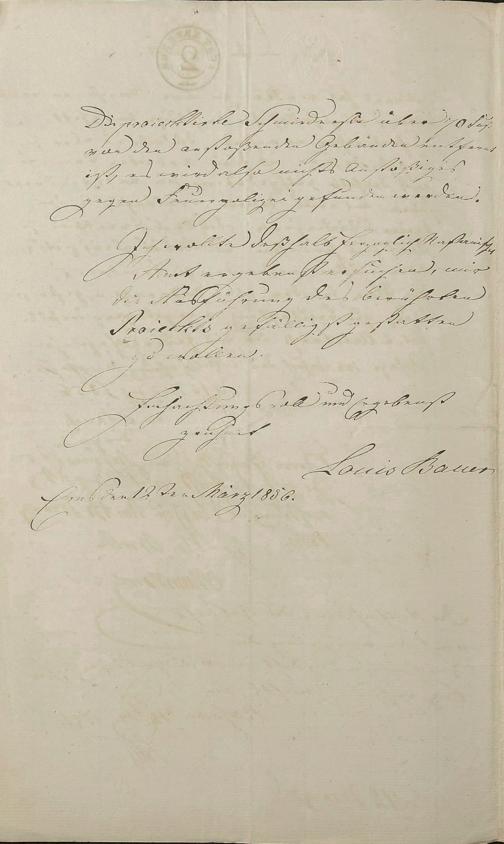 Die projecktirte Schmiedeesse über 70 Fuß
von den anstoßenden Gebäuden entfernt
ist, es wird also nichts Anstößiges
gegen Feuerpolizei gefunden werden.
Ich wollte deßhalb Herzoglich Nassauisches
Amt ergebenst ersuchen, mir
die Ausführung des berührten
Projeckts gefälligst gestatten
zu wollen.
Hochachtungsvoll und Ergebenst
zeichnet
Louis Bauer
Ems den 12ten März 1856.